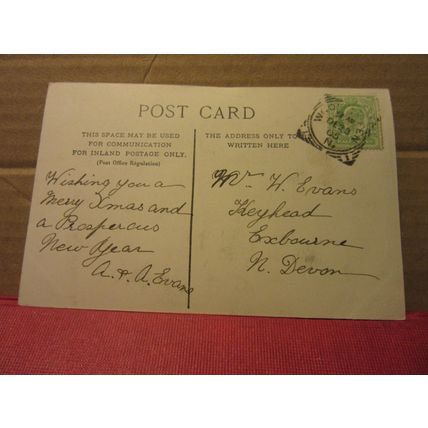 POST CARD
THIS SPACE MAY BE USED
FOR COMMUNICATION
FOR INLAND POSTAGE ONLY.
(Post Office Regulation)
Wishing you a
Merry Xmas and
a Prosperous
New Year
A. & A. Evans
THE ADDRESS ONLY TO
WRITTEN HERE
Mr W. Evans
Keyhead
Exbourne
N. Devon